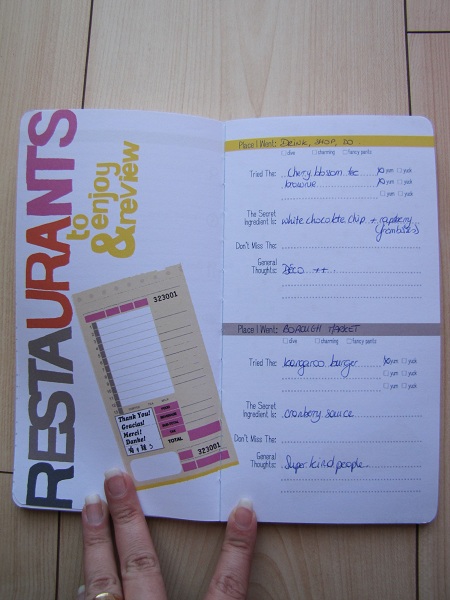 RESTAURANTS
to
enjoy
&review
323001
Thank You!
Gracias!
Merci!
Danke!
TOTAL
323001
Place I Went: DRINK, SHOP, DO
☐ dive ☐ charming ☐ fancy pants
Tried The: Cherry blossom tea ☒ yum ☐ yuck
brownie ☒ yum ☐ yuck
☐ yum ☐ yuck
The Secret
Ingredient Is: white chocolate chip + raspberry
Don't Miss The:
General
Thoughts: Déco ++
Place I Went: BOROUGH MARKET
☐ dive ☐ charming ☐ fancy pants
Tried The: kangaroo burger ☒ yum ☐ yuck
☐ yum ☐ yuck
☐ yum ☐ yuck
The Secret
Ingredient Is: cranberry sauce
Don't Miss The:
General
Thoughts: Super kind people